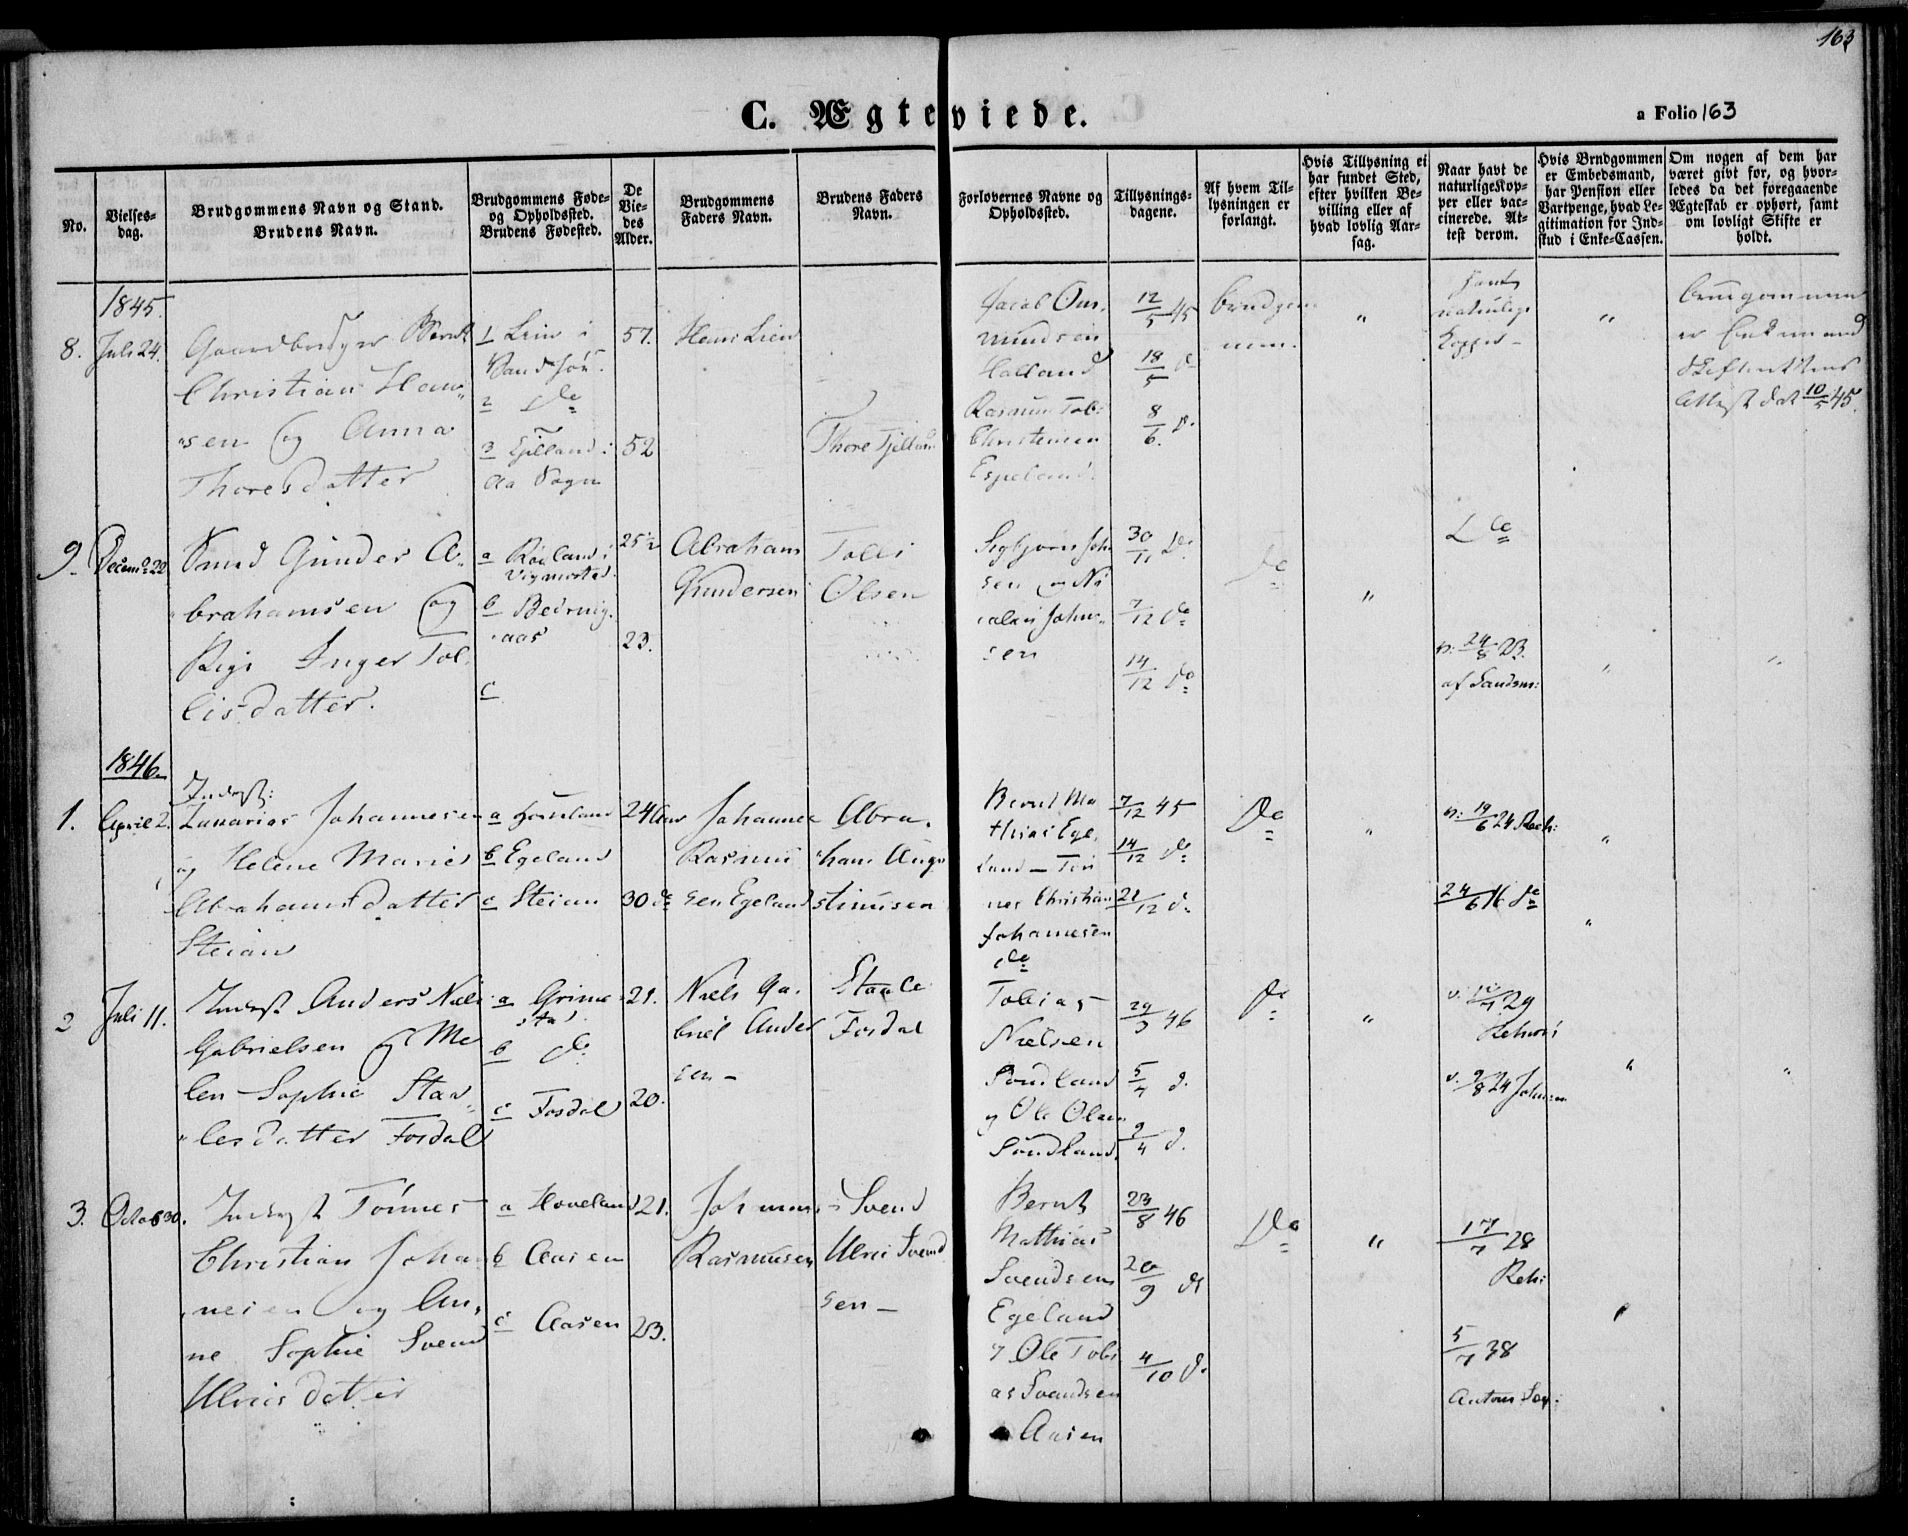 163
C. Ægteviede.
a Folio 163
No.
Vielses-
dag.
Brudgommens Navn og Stand.
Brudens Navn.
Brudgommens Føde-
og Opholdssted.
Brudens Fødested.
De
Vie-
des
Alder.
Brudgommens
Faders Navn.
Brudens Faders
Navn.
Forlovernes Navne og
Opholdssted.
Tillysnings-
dagene.
Af hvem Til-
lysningen er
forlangt.
Hvis Tillysning ei
har fundet Sted,
efter hvilken Be-
villing eller af
hvad lovlig Aar-
sag.
Naar havt de
naturlige Kop-
per eller vac-
cinerede. At-
test derom.
Hvis Brudgommen
er Embedsmand,
har Pension eller
Vartpenge, hvad Le-
gitimation for Ind-
skud i Enke-Cassen.
Om nogen af dem har
været givt før, og hvor-
ledes da det foregaaende
Ægteskab er ophørt, samt
om lovligt Skifte er
holdt.
1845.
8. Juli 24.
Gaardbruger Bernt
Christian Han-
sen og Anna
Thoresdatter
1 Lein i
2 do
3 Fjelland i
Aa Sogn
57.
52
Hans Lein
Jacob Om-
mundsen
Halland
Rasmus Tob:
Christensen
Espeland.
12/5 45
18/5 d
8/6 d.
brudgom
men.
"
havt
naturlige
Kopper -
"
brudgommen
er Enkemand
Attest dat 10/5 45.
9. Decem. 22
Gunder A-
brahamsen og
Inger Tol-
lisdatter.
a
Vigmostad
b
c
25½
23.
Abraham
Gundersen
Tolli
Olsen
Sigbjørn Joh
sen og
Johan-
sen
30/11 do
7/12 do
14/12 do
do
"
do
v. 24/8 23.
"
"
1846.
1. April 2.
Inderst:
Zakarias Johannesen
og Helene Marie
Abrahamsdatter
Steian
b Egeland
c Steian
24 Aar
30 do
Johannes
Rasmus
sen Egeland
Abra-
ham Augu
stinusen
Bernt Ma
thias Ege-
land - Tøn
nes Christian
Johannesen
do
7/12 45
14/12 do
21/12 d.
do
"
v: 19/6 24 Reh:
24/6 16 do
"
"
2 Juli 11.
Inderst Anders Niels
Gabrielsen og Me
len Sophie Staa-
lesdatter Fosdal
a Grime
stad
b do
c Fosdal
21.
20.
Niels Ga-
briel Ander
sen -
Staale
Fosdal
Tobias
Nielsen
Søndland
og Ole Olsen
Søndland.
29/3 46
5/4 d.
9/4 d.
do
"
"
"
3. Octob 30.
Inderst Tønnes
Christian Johan
nesen og An-
ne Sophie Svend
Ulricsdatter
a Hoveland
b Aasen
c Aasen
21.
23.
Johannes
Rasmusen
Svend
Ulric Svend
sen -
Bernt
Mathias
Svendsen
Egeland
og Ole Tobi
as Svendsen
Aasen
23/8 46
20/9 do
4/10 do
do
"
17/7 28
Reh:
5/7 38
"